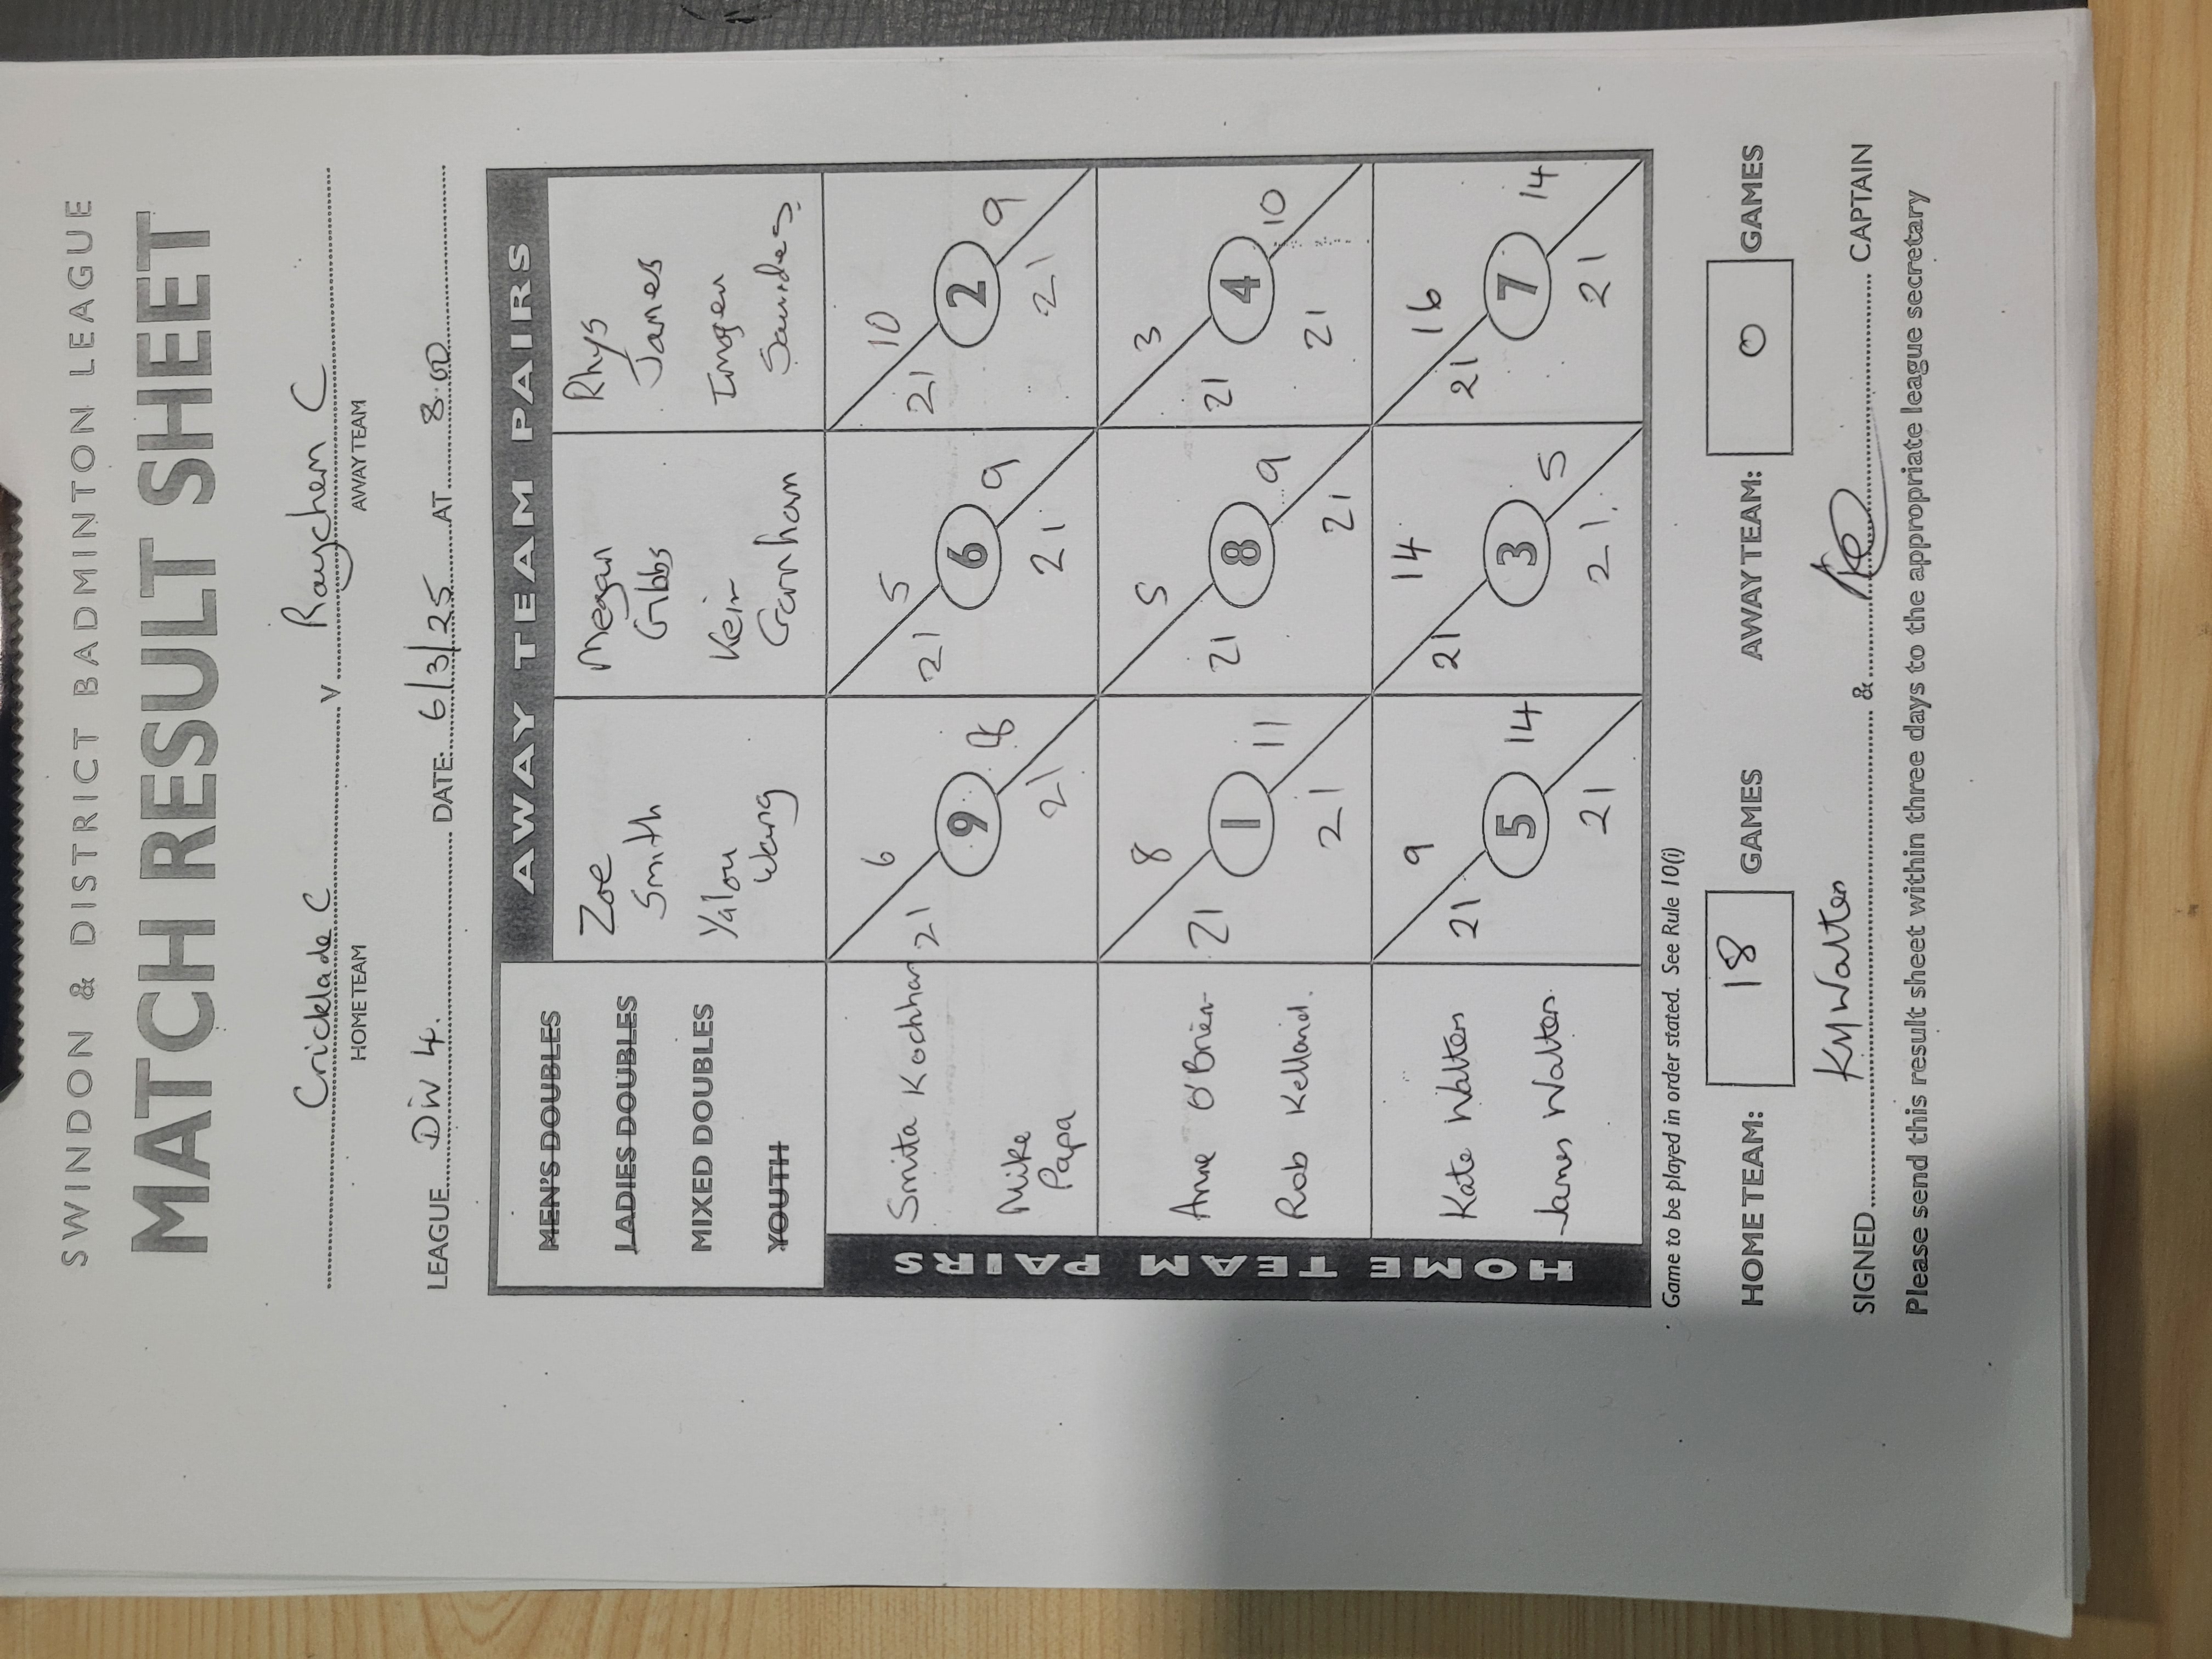 SWINDON & DISTRICT BADMINTON LEAGUE
MATCH RESULT SHEET
Cricklade C v Raychem C
HOME TEAM AWAY TEAM
LEAGUE Div 4. DATE: 6/3/25 AT 8.00
AWAY TEAM PAIRS
MEN'S DOUBLES
LADIES DOUBLES
MIXED DOUBLES
YOUTH
Zoe
Smith
Yalou
Wang
Megan
Gibbs
Keir
Garnham
Rhys
James
Imogen
HOME TEAM PAIRS
Smita Kochhar
Mike
Papa
21 6
9
21
21 5
6 9
21
21 10
2 9
21
Anne O'Brien
Rob Kelland.
21 8
1 11
21
21 5
8 9
21
21 3
4 10
21
Kate Walton
James Walton
21 9
5 14
21
21 14
3 5
21.
21 16
7 14
21
Game to be played in order stated. See Rule 10(i)
HOME TEAM: 18 GAMES AWAY TEAM: 0 GAMES
SIGNED KMWalton & CAPTAIN
Please send this result sheet within three days to the appropriate league secretary